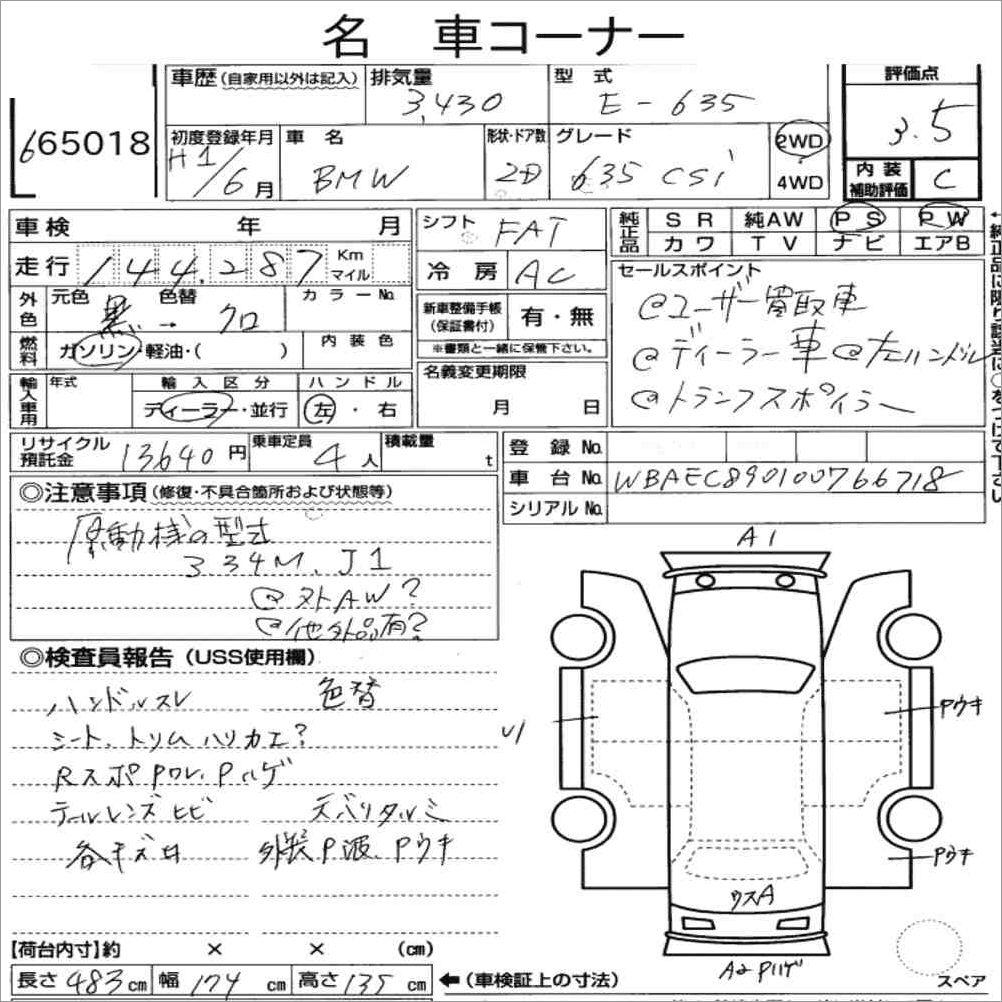 名 車コーナー
665018
車歴(自家用以外は記入) 排気量 3,430 型式 E-635 評価点 3.5
初度登録年月 H1/6月 車名 BMW 形状・ドア数 2D グレード 635 csi 2WD 4WD 内装補助評価 C
車検 年 月 シフト FAT 純正品 SR 純AW PS PW
カワ TV ナビ エアB
走行 144,287 Km マイル 冷房 AC
外色 元色 黒 → 色替 クロ カラーNo. 新車整備手帳(保証書付) 有・無
※書類と一緒に保管下さい。
燃料 ガソリン・軽油・( ) 内装色
セールスポイント
@ユーザー買取車
@ディーラー車 @左ハンドル
@トランクスポイラー
輸入車用 年式 輸入区分 ディーラー・並行 ハンドル 左・右 名義変更期限 月 日
リサイクル預託金 13640円 乗車定員 4人 積載量 t
登録No.
車台No. WBAEC890100766718
シリアルNo.
◎注意事項(修復・不具合箇所および状態等)
原動機の型式
334M、J1
@ヌトAW?
@他外品有?
◎検査員報告(USS使用欄)
ハンドルスレ 色替
シート、トリムハリカエ?
RスポPワレ、Pハゲ
テールレンズヒビ 天バリタルミ
各キズ凹 外装P波、Pウキ
A1
U1
Pウキ
Pウキ
ウスA
A2 Pハゲ
スペア
【荷台内寸】約 × × (cm)
長さ 483 cm 幅 174 cm 高さ 135 cm ←(車検証上の寸法)